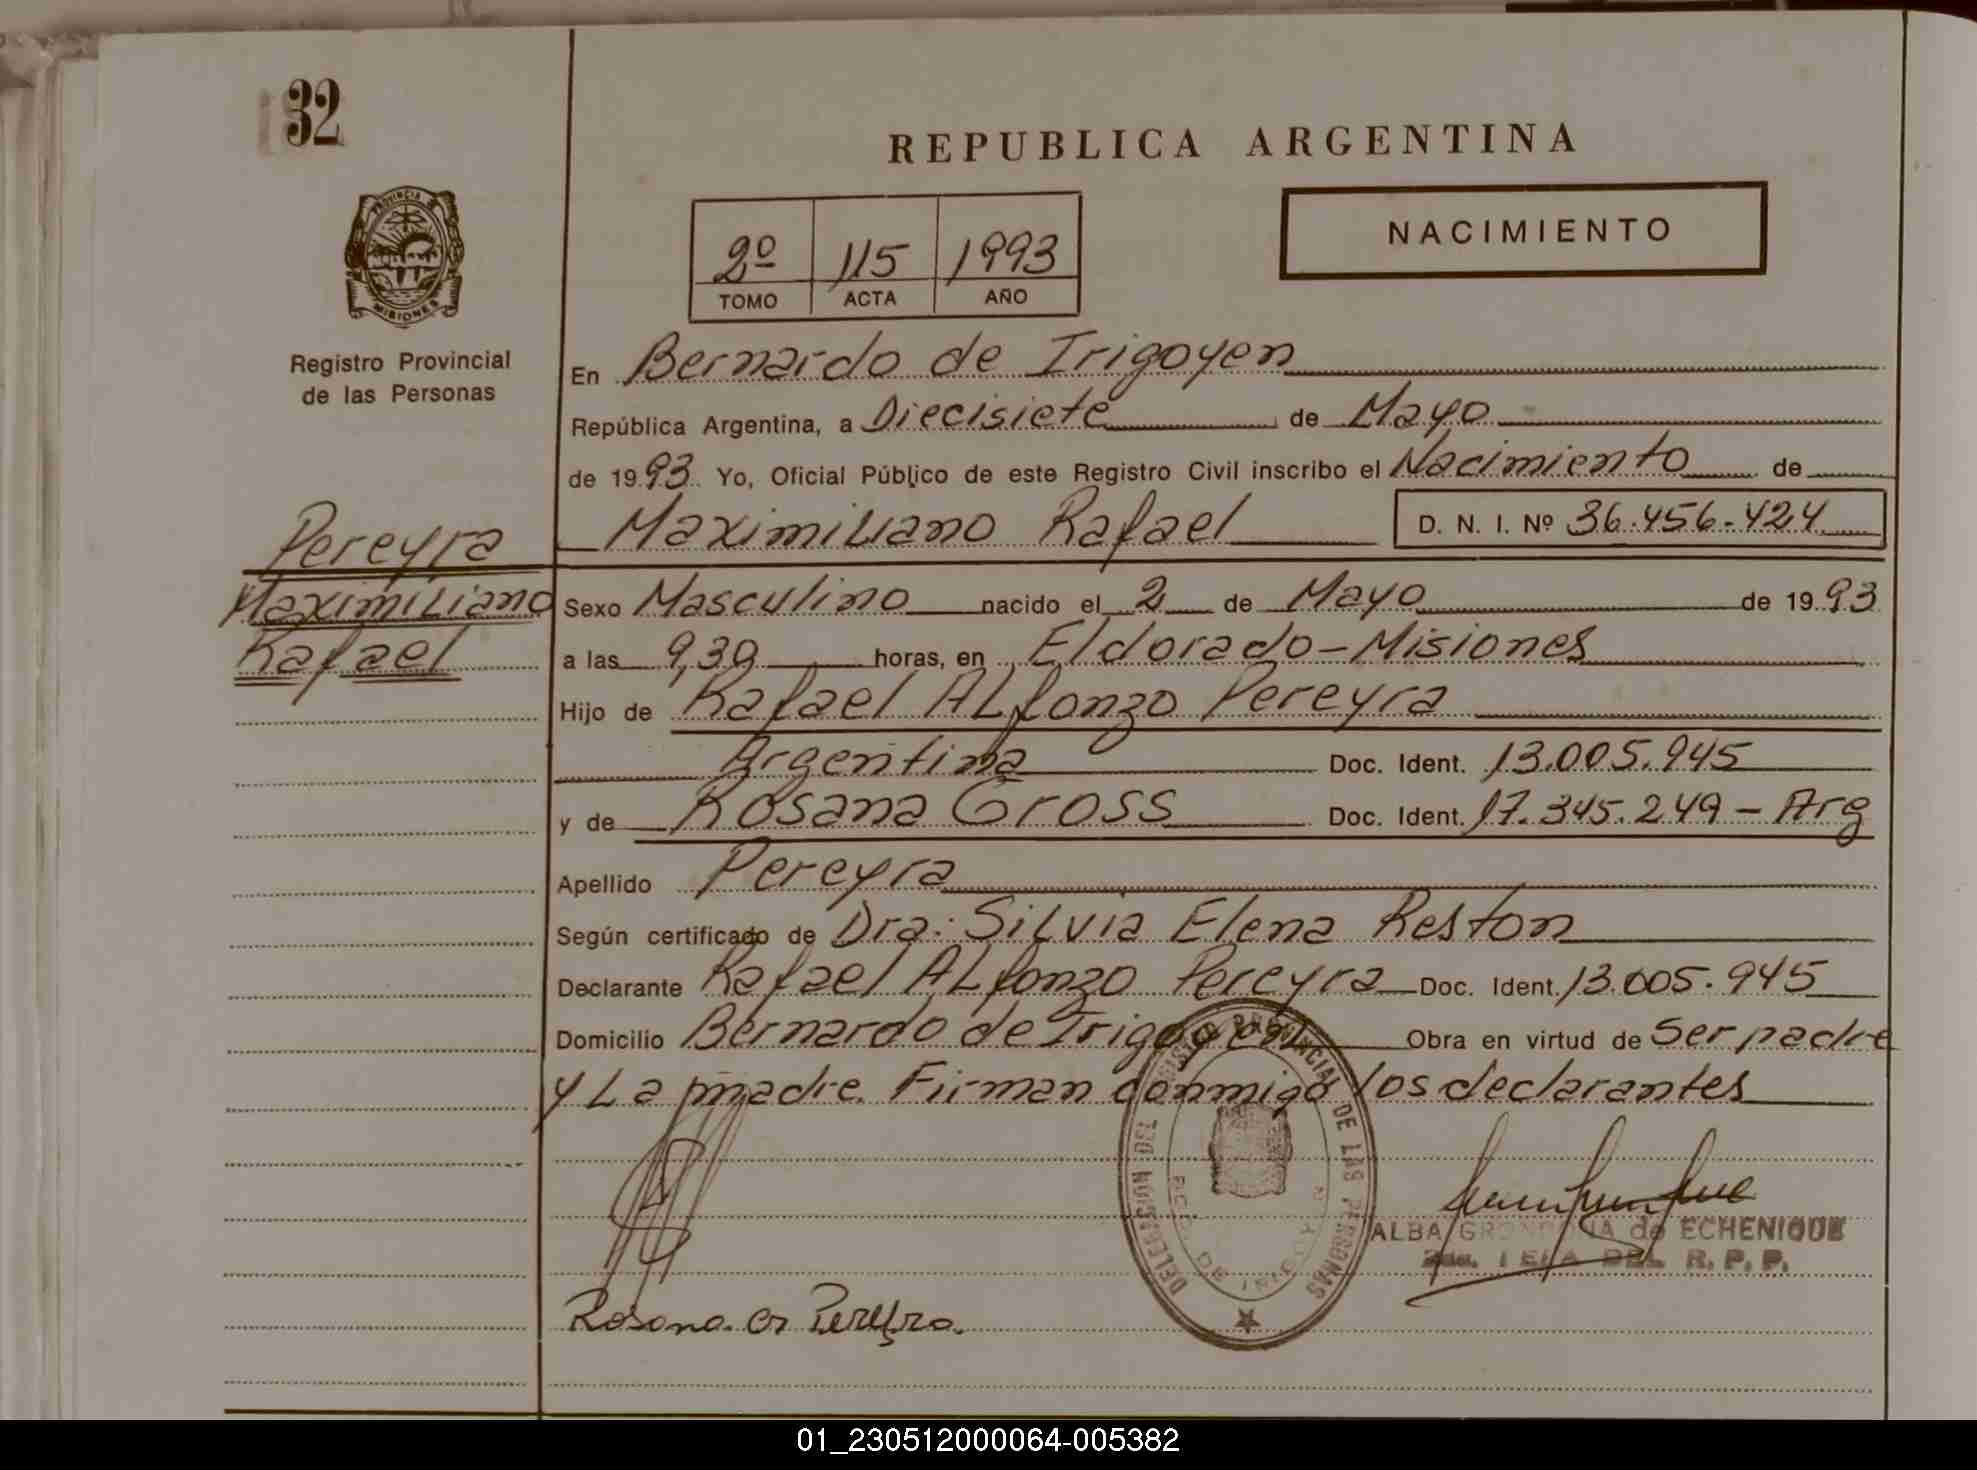 32
REPUBLICA ARGENTINA
PROVINCIA DE
MISIONES
NACIMIENTO
2º 115 1993
TOMO ACTA AÑO
Registro Provincial
de las Personas
En Bernardo de Irigoyen
República Argentina, a Diecisiete de Mayo
de 1993. Yo, Oficial Público de este Registro Civil inscribo el Nacimiento de
Maximiliano Rafael D. N. I. Nº 36.456.424
Pereyra
Maximiliano
Rafael
Sexo Masculino nacido el 2 de Mayo de 1993
a las 9,30 horas, en Eldorado-Misiones
Hijo de Rafael Alfonzo Pereyra
Argentina Doc. Ident. 13.005.945
y de Rosana Gross Doc. Ident. 17.345.249 - Arg
Apellido Pereyra
Según certificado de Dra: Silvia Elena Reston
Declarante Rafael Alfonzo Pereyra Doc. Ident. 13.005.945
Domicilio Bernardo de Irigoyen Obra en virtud de Ser padre
y La madre. Firman conmigo los declarantes
DELEGACION DEL REGISTRO PROVINCIAL DE LAS PERSONAS
BDO. DE IRIGOYEN
ALBA GRONDONA de ECHENIQUE
JEFA DEL R. P. P.
Rosana G Pereyra.
01_230512000064-005382